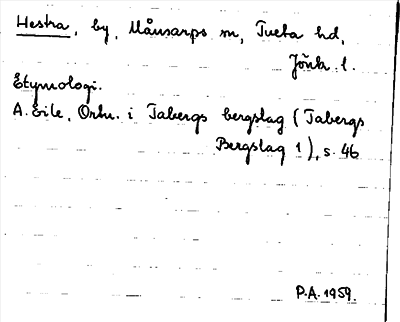 Hestra, by, Månsarps sn, Tveta hd,
Jönk. l.
Etymologi.
A. Eile, Ortn. i Tabergs bergslag (Tabergs
Bergslag 1), s. 46
P.A. 1959.